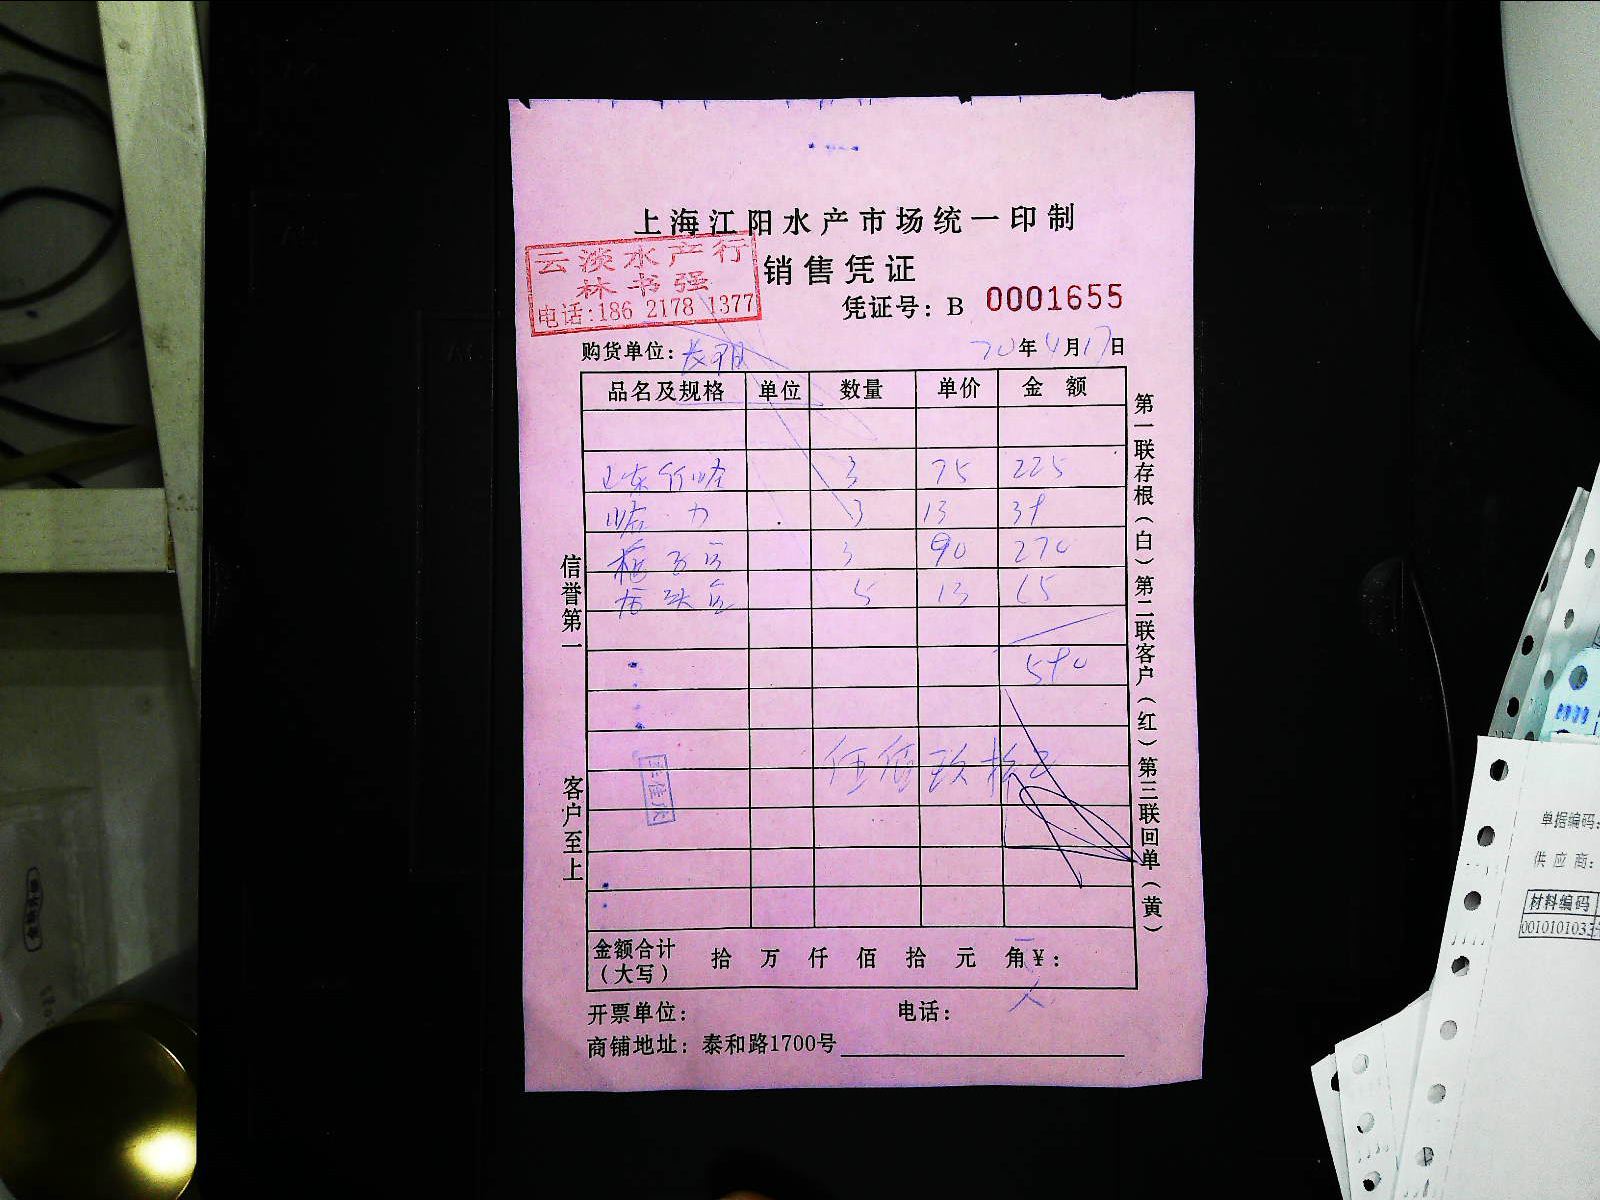 上海江阳水产市场统一印制
云淡水产行
林书强
电话:186 2178 1377
销售凭证
凭证号：B 0001655
购货单位：
20年4月17日
品名及规格 单位 数量 单价 金额
山东竹蛤 3 75 225
蛤 力 3 13 39
3 90 270
5 13 65
590
伍佰玖拾元
金额合计（大写） 拾 万 仟 佰 拾 元 角 ¥：
开票单位： 电话：
商铺地址：泰和路1700号
信誉第一 客户至上
第一联存根（白）第二联客户（红）第三联回单（黄）
单据编码：
供应商：
材料编码